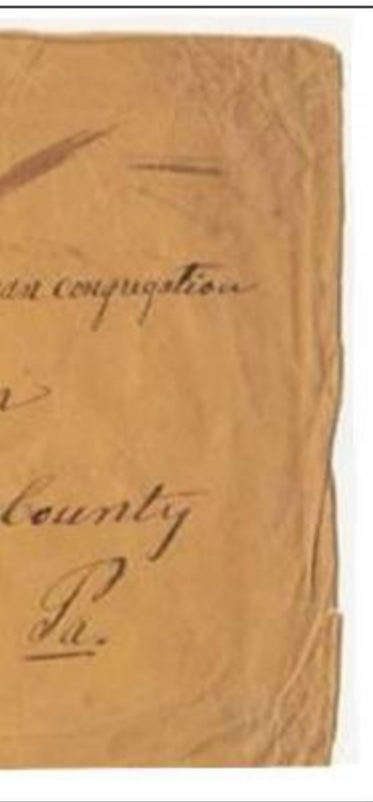 congregation
County
Pa.